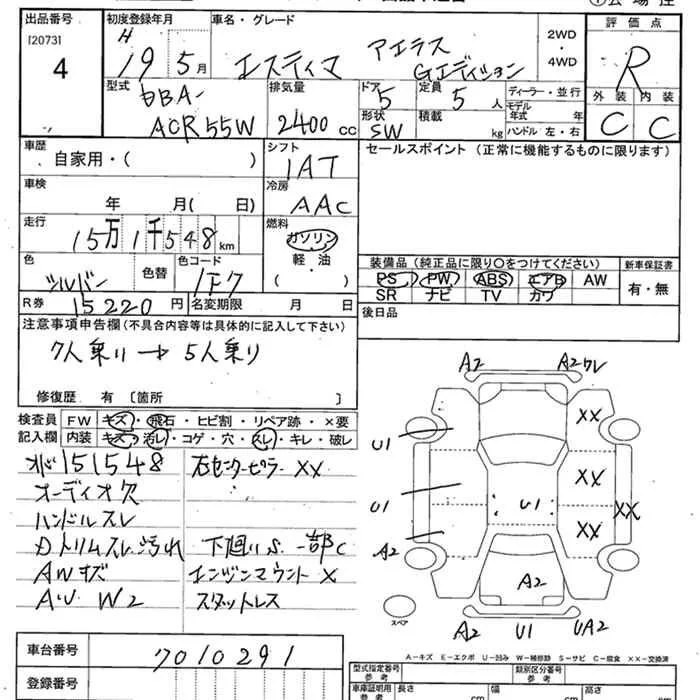 出品番号 初度登録年月 車名・グレード 2WD 評価点
[2073] H 19 5月 エスティマ アエラス Gエディション ・ R
4 4WD
型式 排気量 ドア 定員 ディーラー・並行 外装 内装
DBA- 5 5人 モデル年式 年式
ACR55W 2400cc 形状 SW 積載 kg ハンドル 左・右 C C
車歴 シフト セールスポイント (正常に機能するものに限ります)
自家用・( ) IAT
車検 冷房
年 月( 日) AAC
走行 燃料
15万1千548km ガソリン
色 色コード 軽・油 装備品 (純正品に限り○をつけてください) 新車保証書
シルバー 色替 1F7 ( ) PS PW ABS エアB AW 有・無
SR ナビ TV カワ
R券 15220円 名変期限 月 日 後日品
注意事項申告欄(不具合内容等は具体的に記入して下さい)
7人乗り→5人乗り
修復歴 有 〔箇所 〕
検査員 FW キズ・飛石・ヒビ割・リペア跡・×要
記入欄 内装 キズ・汚レ・コゲ・穴・スレ・キレ・破レ
151548 右センターピラーXX
オーディオ欠
ハンドルスレ
Dトリムスレ汚れ 下廻りS一部C
AWキズ エンジンマウントX
AU W2 スタットレス
A2 A2ワレ
XX
U1
XX
U1 U1 XX
XX
A2
A2
スペア A2 U1 UA2
A-キズ E-エクボ U-凹み W-補修跡 S-サビ C-腐食 XX-交換済
車台番号 7010291 型式指定番号 参考 類別区分番号 参考
登録番号 車庫証明用 参考 長さ cm 幅 cm 高さ cm